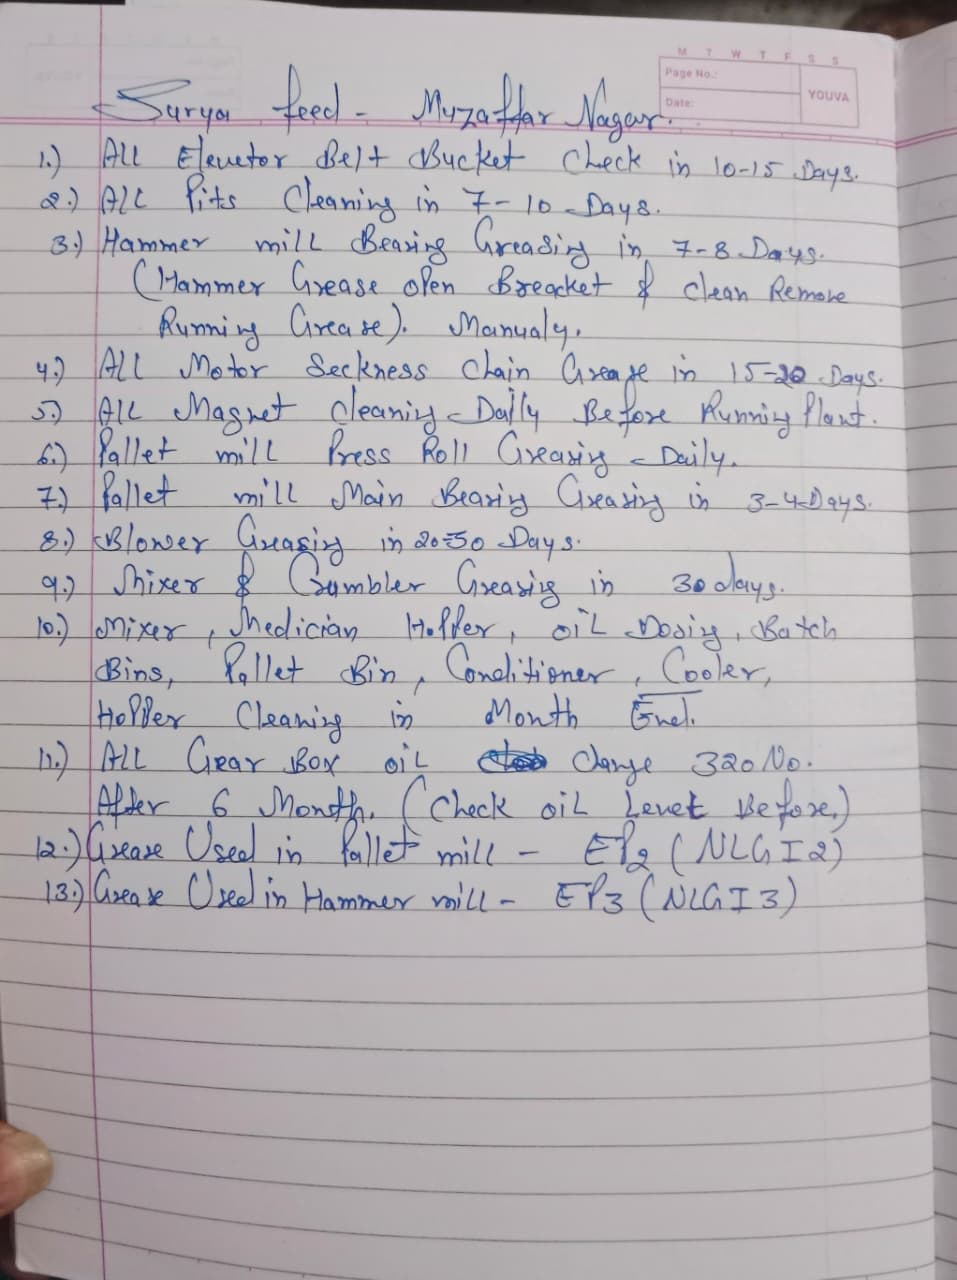 M T W T F S S
Page No.:
Date:
YOUVA
Surya feed - Muzaffar Nagar.
1.) All Elevetor Belt Bucket Check in 10-15 Days.
2.) All Pits Cleaning in 7-10 Days.
3.) Hammer mill Bearing Greasing in 7-8 Days.
(Hammer Grease open Breacket & clean Remove
Running Grease). Manualy.
4.) All Motor Seckness Chain Grease in 15-20 Days.
5.) All Magnet Cleaning - Daily Before Running Plant.
6.) Pallet mill Press Roll Greasing - Daily.
7.) Pallet mill Main Bearing Greasing in 3-4 Days.
8.) Blower Greasing in Days.
9.) Mixer & Crumbler Greasing in 30 days.
10.) Mixer, Medician Hopper, oil Dosing, Batch
Bins, Pallet Bin, Conditioner, Cooler,
Hopper Cleaning in Month End.
11.) All Gear Box oil Change 320 No.
After 6 Month. (Check oil Level Before.)
12.) Grease Used in Pallet mill - EP2 (NLGI2)
13.) Grease Used in Hammer mill - EP3 (NLGI3)